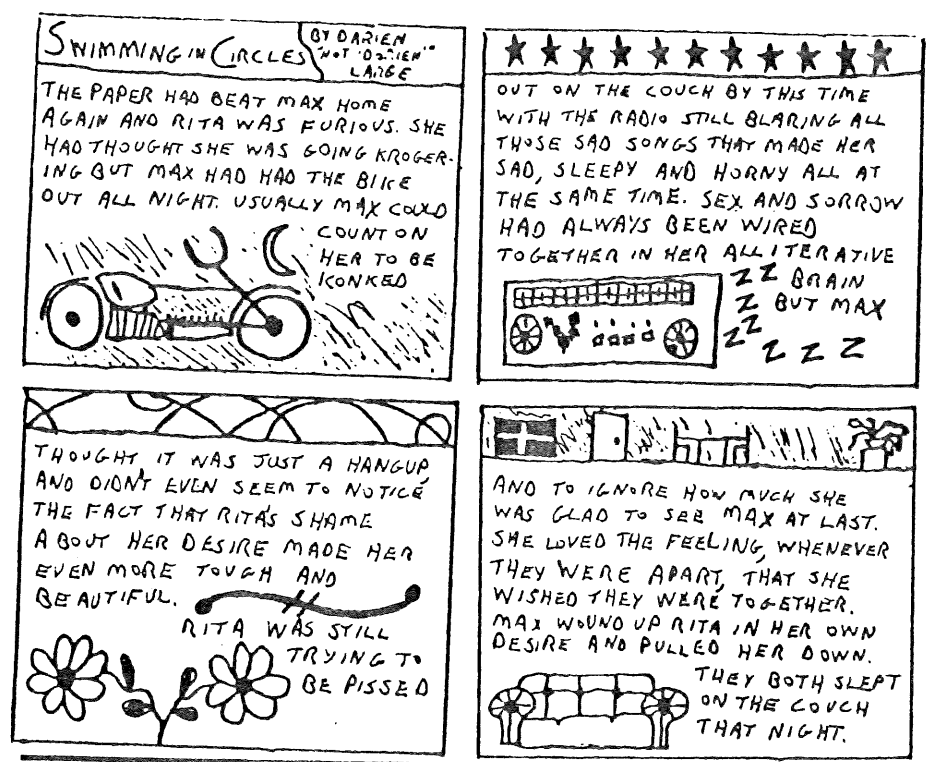 SWIMMING IN CIRCLES
BY DARIEN
"NOT 'DARIEN'"
LARGE
THE PAPER HAD BEAT MAX HOME
AGAIN AND RITA WAS FURIOUS. SHE
HAD THOUGHT SHE WAS GOING KROGER-
ING BUT MAX HAD HAD THE BIKE
OUT ALL NIGHT. USUALLY MAX COULD
COUNT ON
HER TO BE
KONKED
OUT ON THE COUCH BY THIS TIME
WITH THE RADIO STILL BLARING ALL
THOSE SAD SONGS THAT MADE HER
SAD, SLEEPY AND HORNY ALL AT
THE SAME TIME. SEX AND SORROW
HAD ALWAYS BEEN WIRED
TOGETHER IN HER ALLITERATIVE
ZZ BRAIN
Z BUT MAX
ZZ
Z Z Z
THOUGHT IT WAS JUST A HANGUP,
AND DIDN'T EVEN SEEM TO NOTICE
THE FACT THAT RITA'S SHAME
ABOUT HER DESIRE MADE HER
EVEN MORE TOUGH AND
BEAUTIFUL.
RITA WAS STILL
TRYING TO
BE PISSED
AND TO IGNORE HOW MUCH SHE
WAS GLAD TO SEE MAX AT LAST.
SHE LOVED THE FEELING, WHENEVER
THEY WERE APART, THAT SHE
WISHED THEY WERE TOGETHER.
MAX WOUND UP RITA IN HER OWN
DESIRE AND PULLED HER DOWN.
THEY BOTH SLEPT
ON THE COUCH
THAT NIGHT.